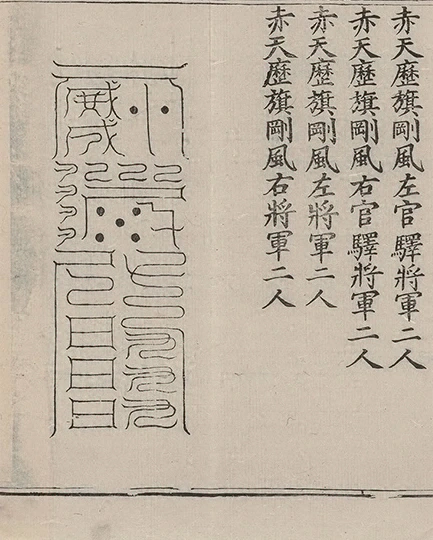 赤天歷旗剛風左官驛將軍二人
赤天歷旗剛風右官驛將軍二人
赤天歷旗剛風左將軍二人
赤天歷旗剛風右將軍二人